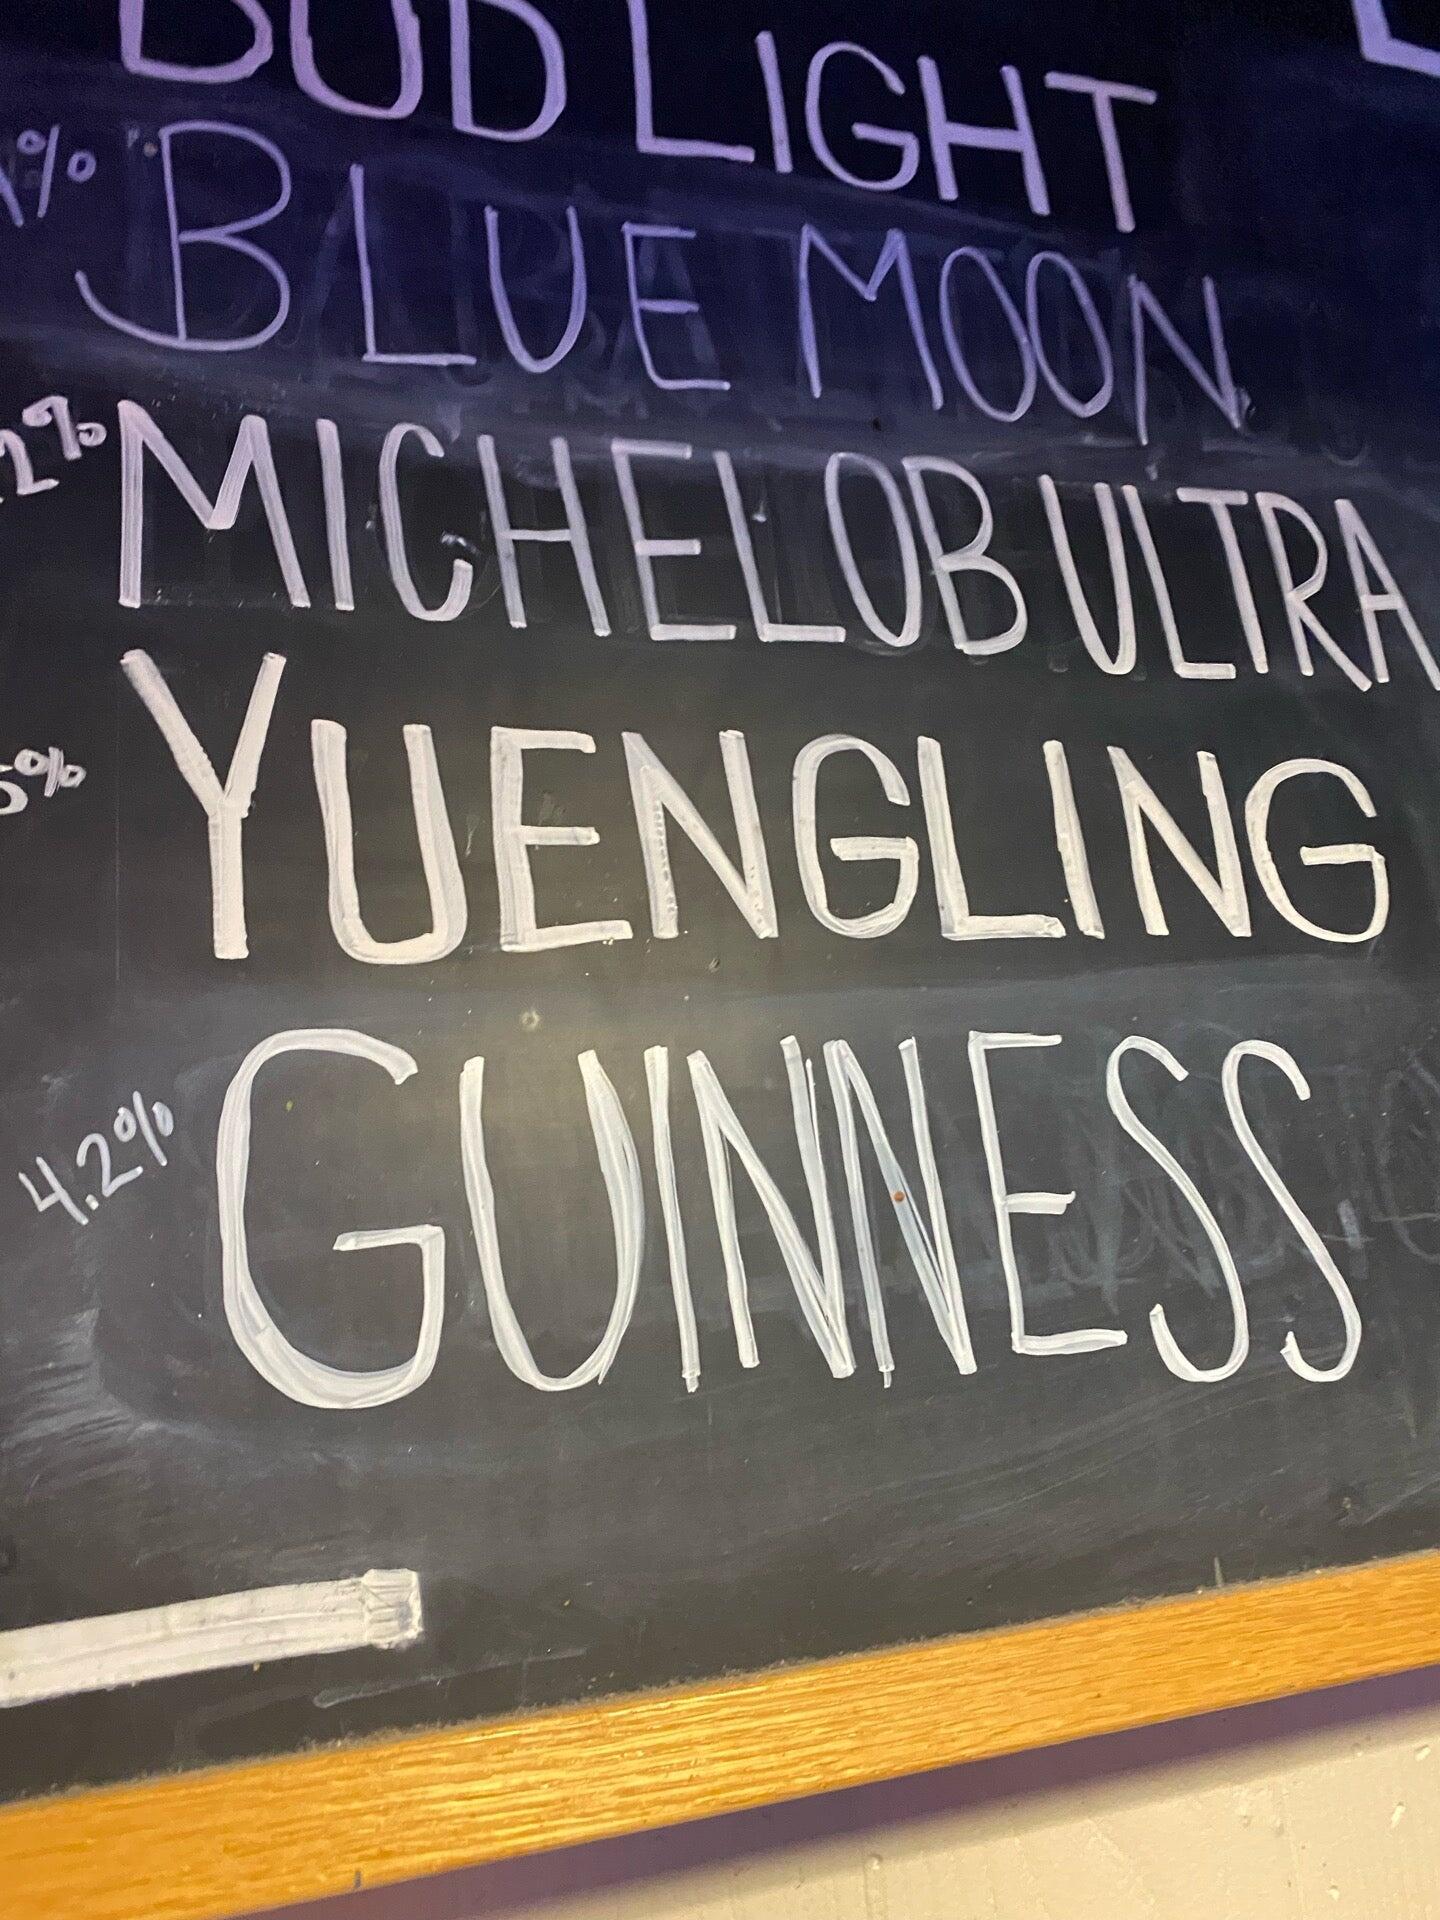 BUD LIGHT
% BLUE MOON
2% MICHELOB ULTRA
5% YUENGLING
4.2% GUINNESS